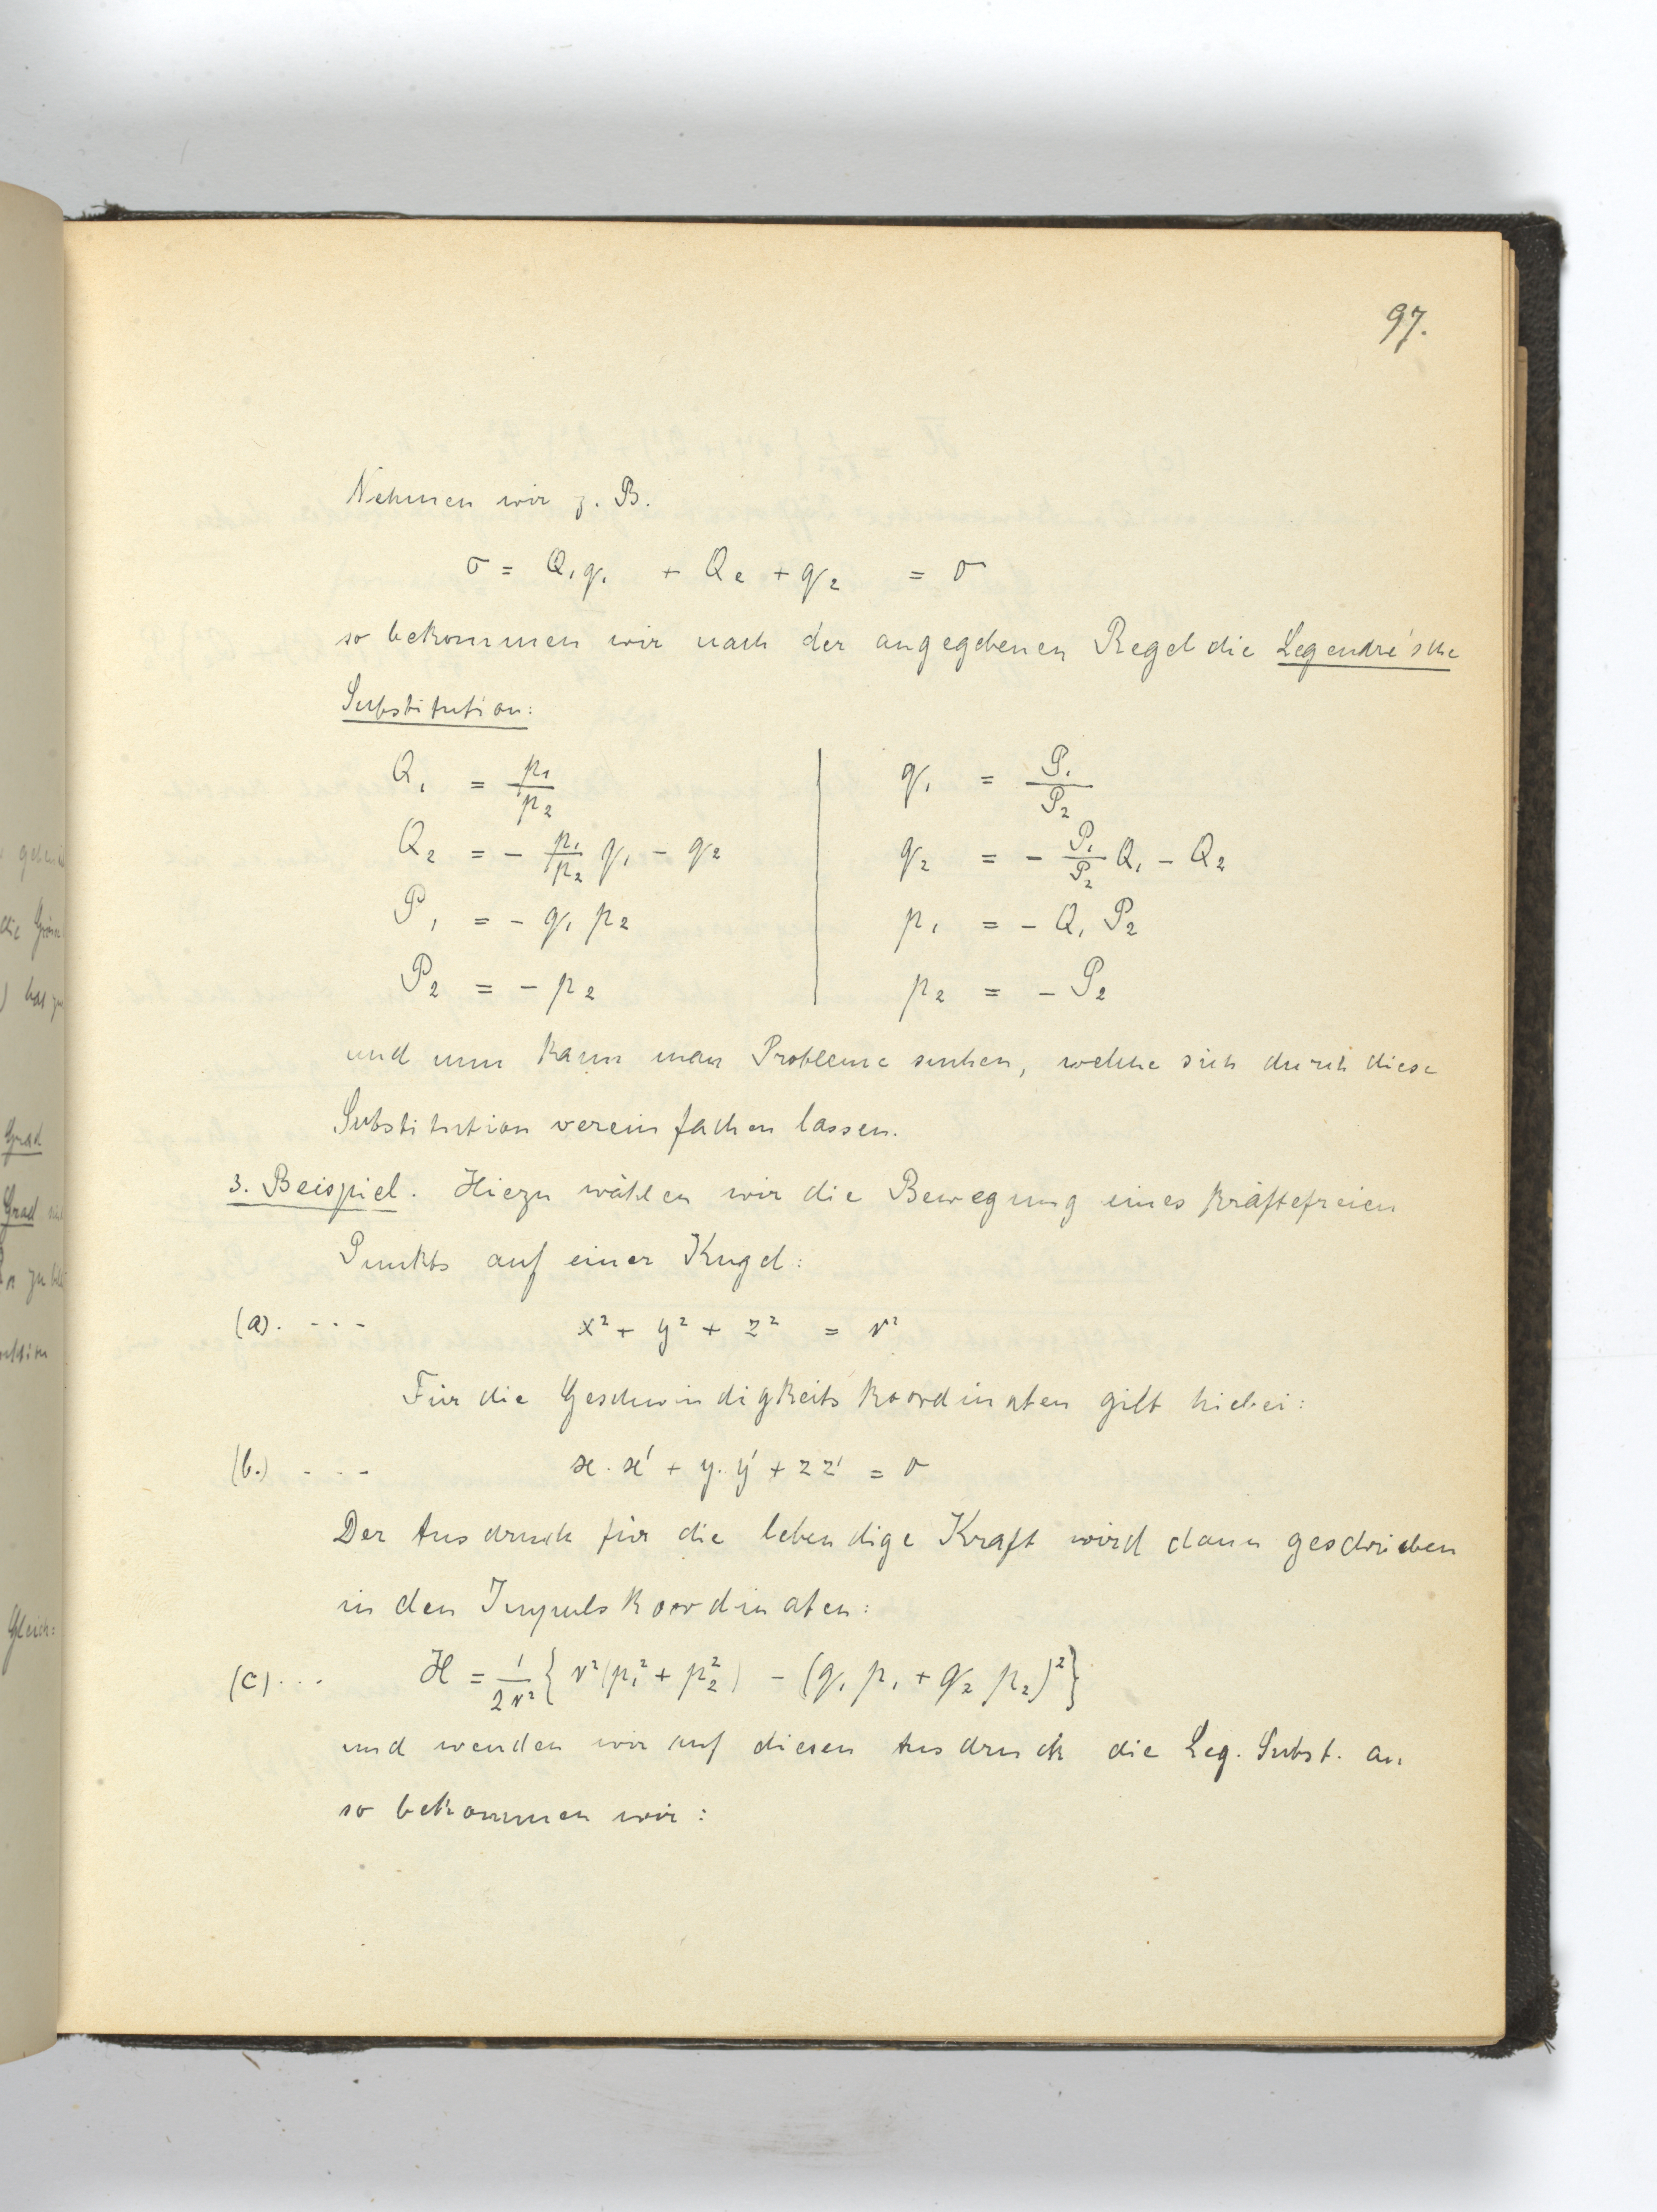 97.
Nehmen wir z. B.
σ = Q₁q₁ + Q₂ + q₂ = 0
so bekommen wir nach der angegebenen Regel die Legendre'sche
Substitution:
Q₁ = p₁/p₂ | q₁ = P₁/P₂
Q₂ = - p₁/p₂ q₁ - q₂ | q₂ = - P₁/P₂ Q₁ - Q₂
P₁ = - q₁ p₂ | p₁ = - Q₁ P₂
P₂ = - p₂ | p₂ = - P₂
und nun kann man Probleme suchen, welche sich durch diese
Substitution vereinfachen lassen.
3. Beispiel. Hiezu wählen wir die Bewegung eines kräftefreien
Punkts auf einer Kugel:
(a). - - - x² + y² + z² = r²
Für die Geschwindigkeitskoordinaten gilt hiebei:
(b.) - - - x · x' + y · y' + z z' = 0
Der Ausdruck für die lebendige Kraft wird dann geschrieben
in den Impulskoordinaten:
(c) . . . H = 1/2r² { r² (p₁² + p₂²) - (q₁ p₁ + q₂ p₂)² }
und wenden wir auf diesen Ausdruck die Leg. Subst. an
so bekommen wir:
die
Grad
Grad
Gleich: